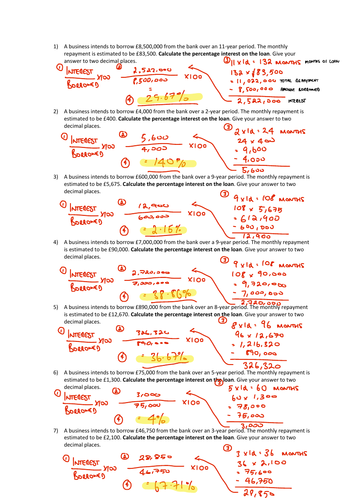 1) A business intends to borrow £8,500,000 from the bank over an 11-year period. The monthly
repayment is estimated to be £83,500. Calculate the percentage interest on the loan. Give your
answer to two decimal places.
① INTEREST / BORROWED X100
② 2,522,000 / 8,500,000 X100
=
④ 29.67%
③ 11 x 12 = 132 MONTHS MONTHS OF LOAN
132 x £83,500
= 11,022,000 TOTAL REPAYMENT
- 8,500,000 AMOUNT BORROWED
2,522,000 INTEREST
2) A business intends to borrow £4,000 from the bank over a 2-year period. The monthly repayment is
estimated to be £400. Calculate the percentage interest on the loan. Give your answer to two
decimal places.
① INTEREST / BORROWED X100
② 5,600 / 4,000 X100
④ = 140%
③ 2 x 12 = 24 MONTHS
24 x 400
= 9,600
- 4,000
5,600
3) A business intends to borrow £600,000 from the bank over a 9-year period. The monthly repayment
is estimated to be £5,675. Calculate the percentage interest on the loan. Give your answer to two
decimal places.
① INTEREST / BORROWED X100
② 12,900 / 600,000 X100
④ = 2.15%
③ 9 x 12 = 108 MONTHS
108 x 5,675
= 612,900
- 600,000
12,900
4) A business intends to borrow £7,000,000 from the bank over a 9-year period. The monthly repayment
is estimated to be £90,000. Calculate the percentage interest on the loan. Give your answer to two
decimal places.
① INTEREST / BORROWED X100
② 2,720,000 / 7,000,000 X100
④ = 38.86%
③ 9 x 12 = 108 MONTHS
108 x 90,000
= 9,720,000
- 7,000,000
2,720,000
5) A business intends to borrow £890,000 from the bank over an 8-year period. The monthly repayment
is estimated to be £12,670. Calculate the percentage interest on the loan. Give your answer to two
decimal places.
① INTEREST / BORROWED X100
② 326,320 / 890,000 X100
④ = 36.67%
③ 8 x 12 = 96 MONTHS
96 x 12,670
= 1,216,320
- 890,000
326,320
6) A business intends to borrow £75,000 from the bank over a 5-year period. The monthly repayment is
estimated to be £1,300. Calculate the percentage interest on the loan. Give your answer to two
decimal places.
① INTEREST / BORROWED X100
② 3,000 / 75,000 X100
④ = 4%
③ 5 x 12 = 60 MONTHS
60 x 1,300
= 78,000
- 75,000
3,000
7) A business intends to borrow £46,750 from the bank over a 3-year period. The monthly repayment is
estimated to be £2,100. Calculate the percentage interest on the loan. Give your answer to two
decimal places.
① INTEREST / BORROWED X100
② 28,850 / 46,750 X100
④ = 61.71%
③ 3 x 12 = 36 MONTHS
36 x 2,100
= 75,600
- 46,750
28,850